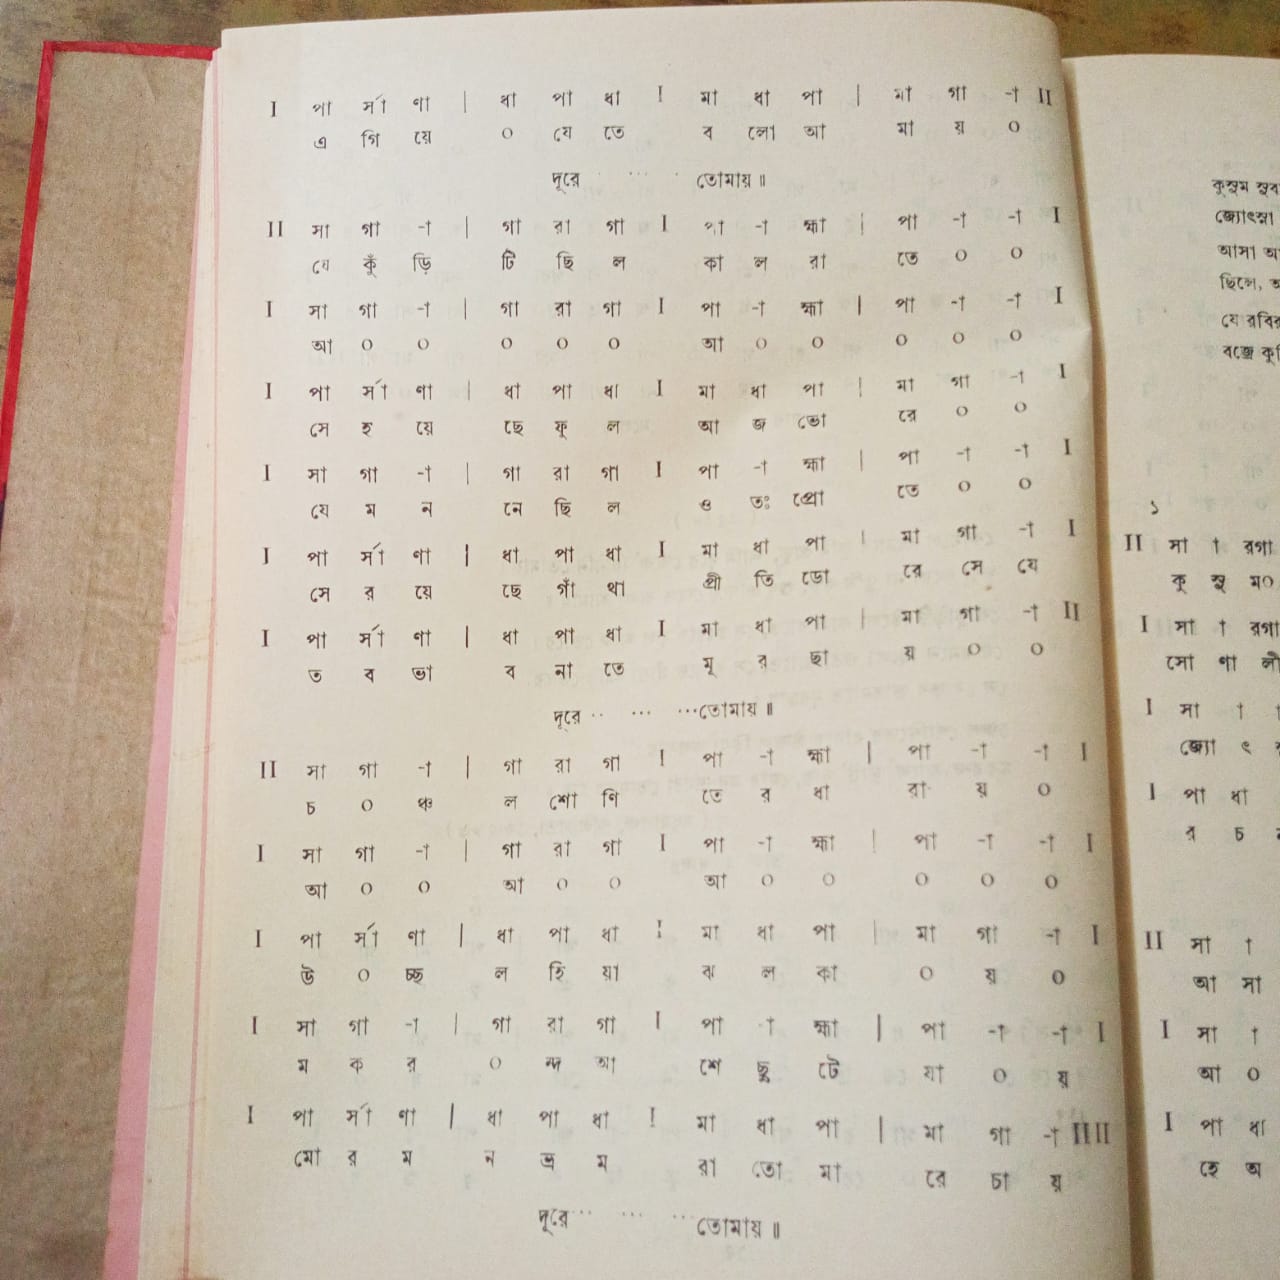 I পা র্সা ণা | ধা পা ধা I মা ধা পা | মা গা -া II
এ গি য়ে ০ যে তে ব লো আ মা য় ০
দূরে ... তোমায়॥
II সা গা -া | গা রা গা I পা -া হ্মা | পা -া -া I
যে কুঁ ড়ি টি ছি ল কা ল রা তে ০ ০
I সা গা -া | গা রা গা I পা -া হ্মা | পা -া -া I
আ ০ ০ ০ ০ ০ আ ০ ০ ০ ০ ০
I পা র্সা ণা | ধা পা ধা I মা ধা পা | মা গা -া I
সে হ য়ে ছে ফু ল আ জ ভো রে ০ ০
I সা গা -া | গা রা গা I পা -া হ্মা | পা -া -া I
যে ম ন নে ছি ল ও তঃ প্রো তে ০ ০
I পা র্সা ণা | ধা পা ধা I মা ধা পা | মা গা -া I
সে র য়ে ছে গাঁ থা প্রী তি ডো রে সে যে
I পা র্সা ণা | ধা পা ধা I মা ধা পা | মা গা -া II
ত ব ভা ব না তে মূ র ছা য় ০ ০
দূরে ·· ... ...তোমায়॥
II সা গা -া | গা রা গা I পা -া হ্মা | পা -া -া I
চ ০ ঞ্চ ল শো ণি তে র ধা রা য় ০
I সা গা -া | গা রা গা I পা -া হ্মা | পা -া -া I
আ ০ ০ আ ০ ০ আ ০ ০ ০ ০ ০
I পা র্সা ণা | ধা পা ধা I মা ধা পা | মা গা -া I
উ ০ চ্ছ ল হি য়া ঝ ল কা ০ য় ০
I সা গা -া | গা রা গা I পা -া হ্মা | পা -া -া I
ম ক র ০ ন্দ আ শে ছু টে যা ০ য়
I পা র্সা ণা | ধা পা ধা I মা ধা পা | মা গা -া IIII
মো র ম ন ভ্র ম রা তো মা রে চা য়
দূরে... ... ...তোমায়॥
কুসুম সুব
জ্যোৎস্না
আসা আ
ছিলে, অ
যে রবির
বজ্রে কু
১
II সা া রগা
কু সু ম০
I সা া রগা
সো ণা লী
I সা া া
জ্যো ৎ
I পা ধা
র চ
II সা া
আ সা
I সা া
আ ০
I পা ধা
হে অ